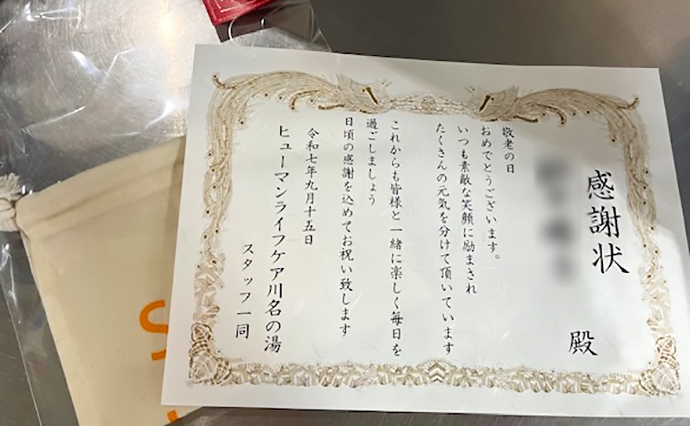 感謝状
殿
敬老の日
おめでとうございます。
いつも素敵な笑顔に励まされ
たくさんの元気を分けて頂いています
これからも皆様と一緒に楽しく毎日を
過ごしましょう
日頃の感謝を込めてお祝い致します
令和七年九月十五日
ヒューマンライフケア川名の湯
スタッフ一同